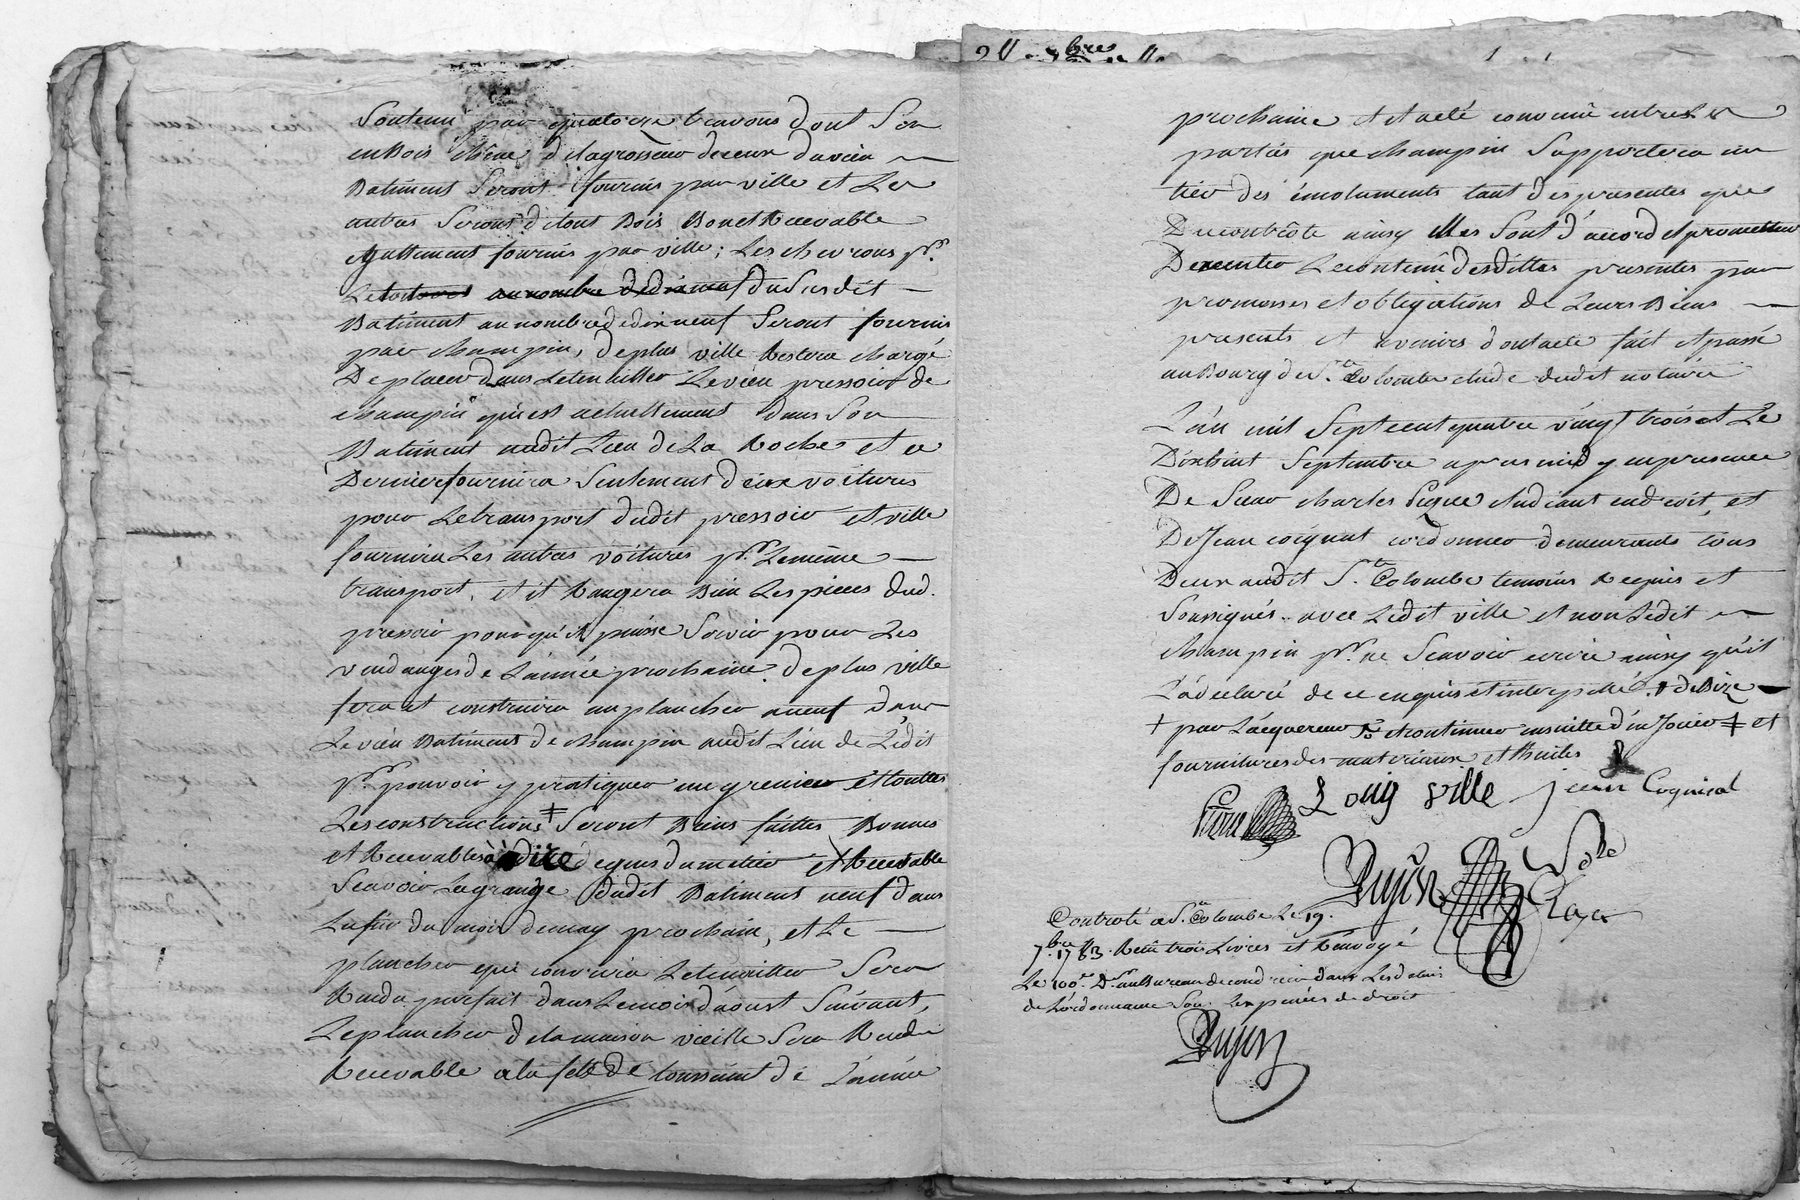 Soutenu par quatorze travons dont Six
en Bois chêne de la grosseur de ceux du vieu
Batiment Seront fournis par ville et Les
autres Seront de tout Bois Bon et Recevable
egallement fournis par ville; Les chevrons pr.
Le toit au nombre de dix neuf du Susdit
Batiment au nombre de dix neuf Seront fournis
par champin, de plus ville Restera chargé
De placer dans Le tenaillier Le vieu pressoir de
champin qui est actuellement dans Son
Batiment audit Lieu de La Roche et ce
Dernier fournira Seulement deux voitures
pour Le transport dudit pressoir et ville
fournira Les autres voitures pr. Le même
transport, et il Rangera Bien Les pieces dud.
pressoir pour qu'il puisse Servir pour Les
vendanges de L'année prochaine. de plus ville
fera et construira un plancher a neuf dans
Le vieu Batiment de champin audit Lieu de
pr. pouvoir y pratiquer un grenier et touttes
Les constructions ‡ Seront Biens faittes Bonnes
et Recevables à dire de gens du metier et Recevable
Scavoir La grange dudit Batiment neuf dans
La fin du mois de may prochain, et Le
plancher qui couvrira Le tenaillier Sera
Rendu parfait dans Le mois d'aoust Suivant,
Le plancher de la maison vieille Sera Rendu
Recevable a la fête de toussaint de L'année
prochaine et il a eté convenu entre Les
parties que champin Supportera un
tier des émoluments tant des presentes que
Du contrôle ainsy Elles Sont d'accord et promettent
D'executer Le contenû desdittes presentes par
promesses et obligations de Leurs Biens
presents et avenirs dont acte fait et passé
au Bourg de Ste. Colombe etude dudit notaire
L'an mil Sept cent quatre vingt trois et Le
Dixhuit Septembre apres midy en presence
De Sieur charles etudiant en droit, et
De Jean coignat cordonnier demeurants tous
Deux audit Ste. Colombe temoins Requis et
Soussignés avec Ledit ville et non Ledit
champin pr. ne Scavoir ecrire ainsy qu'il
L'a declaré de ce enquis et interpellé. † de Dire
† par L'acquereur et continuer ensuitte d'un Jour ‡ et
fournitures des materiaux et thuiles
Louis ville jean Cognial
Dujon
Controlé a Ste. Colombe Le 19.
7bre 1783. Reçu trois Livres et Renvoyé
Le 100e. Dr. au Bureau de condrieu dans Les delais
de L'ordonnance Sous Les peines de droit
Dujon